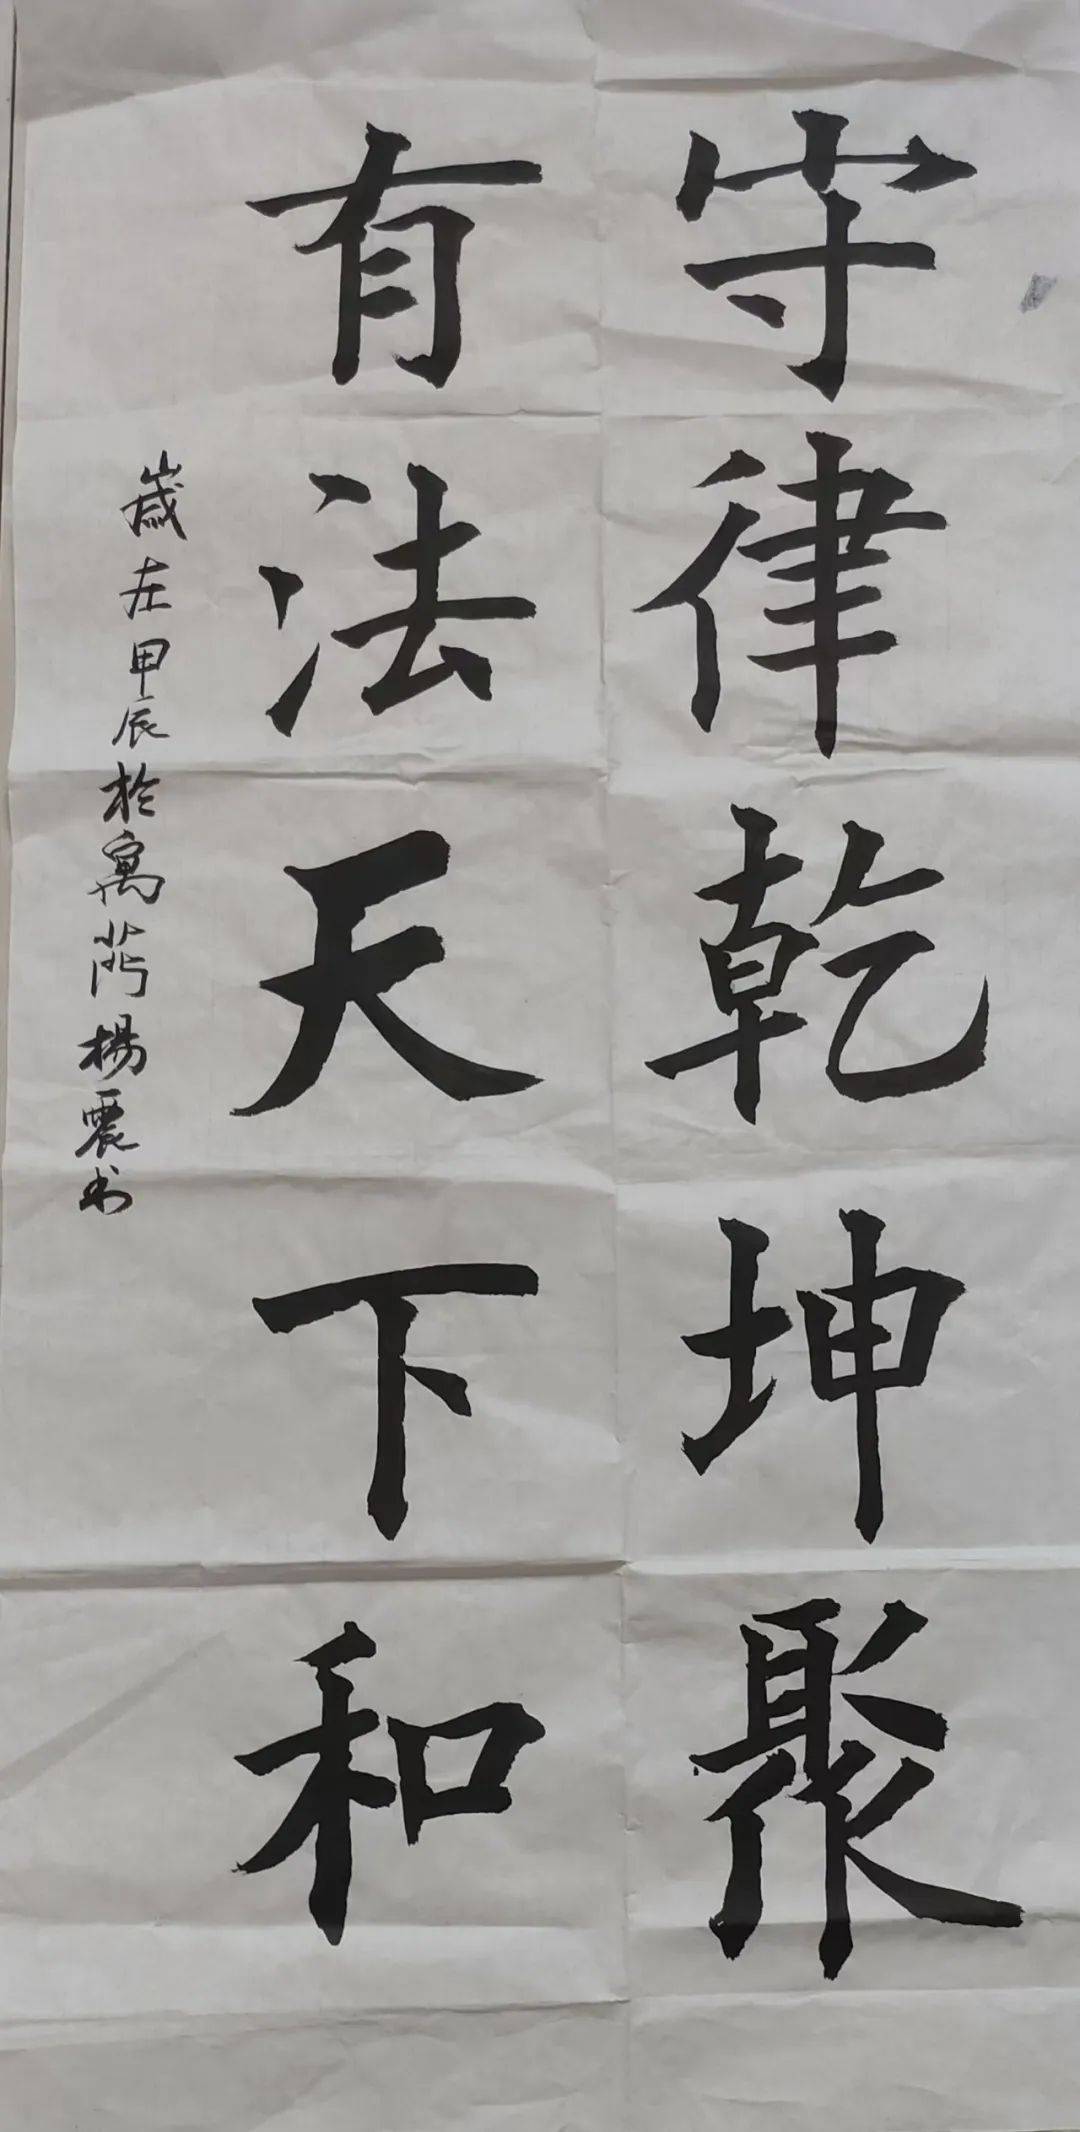 守律乾坤聚
有法天下和
歲在甲辰於寓所楊震书